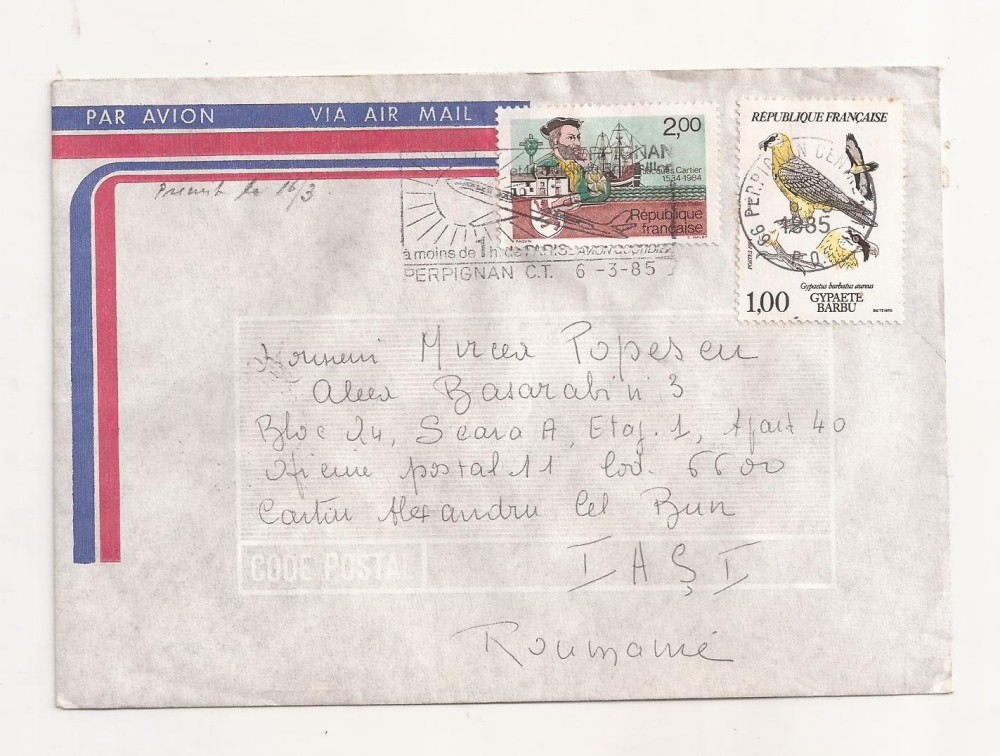 PAR AVION VIA AIR MAIL
2,00
Jacques Cartier
1534-1984
République
française
RÉPUBLIQUE FRANÇAISE
1985
Gypaetus barbatus aureus
1,00 GYPAETE
BARBU
BETEMPS
PERPIGNAN
à moins de 1h. de PARIS AVION QUOTIDIEN
PERPIGNAN C.T. 6-3-85
66 PERPIGNAN
16/3
Mircea Popescu
Aleea Basarabi n 3
Bloc 24, Scara A, Etaj. 1, Apart 40
postal 11 Cod. 6600
Cartier Alexandru Cel Bun
IAȘI
Roumanie
CODE POSTAL